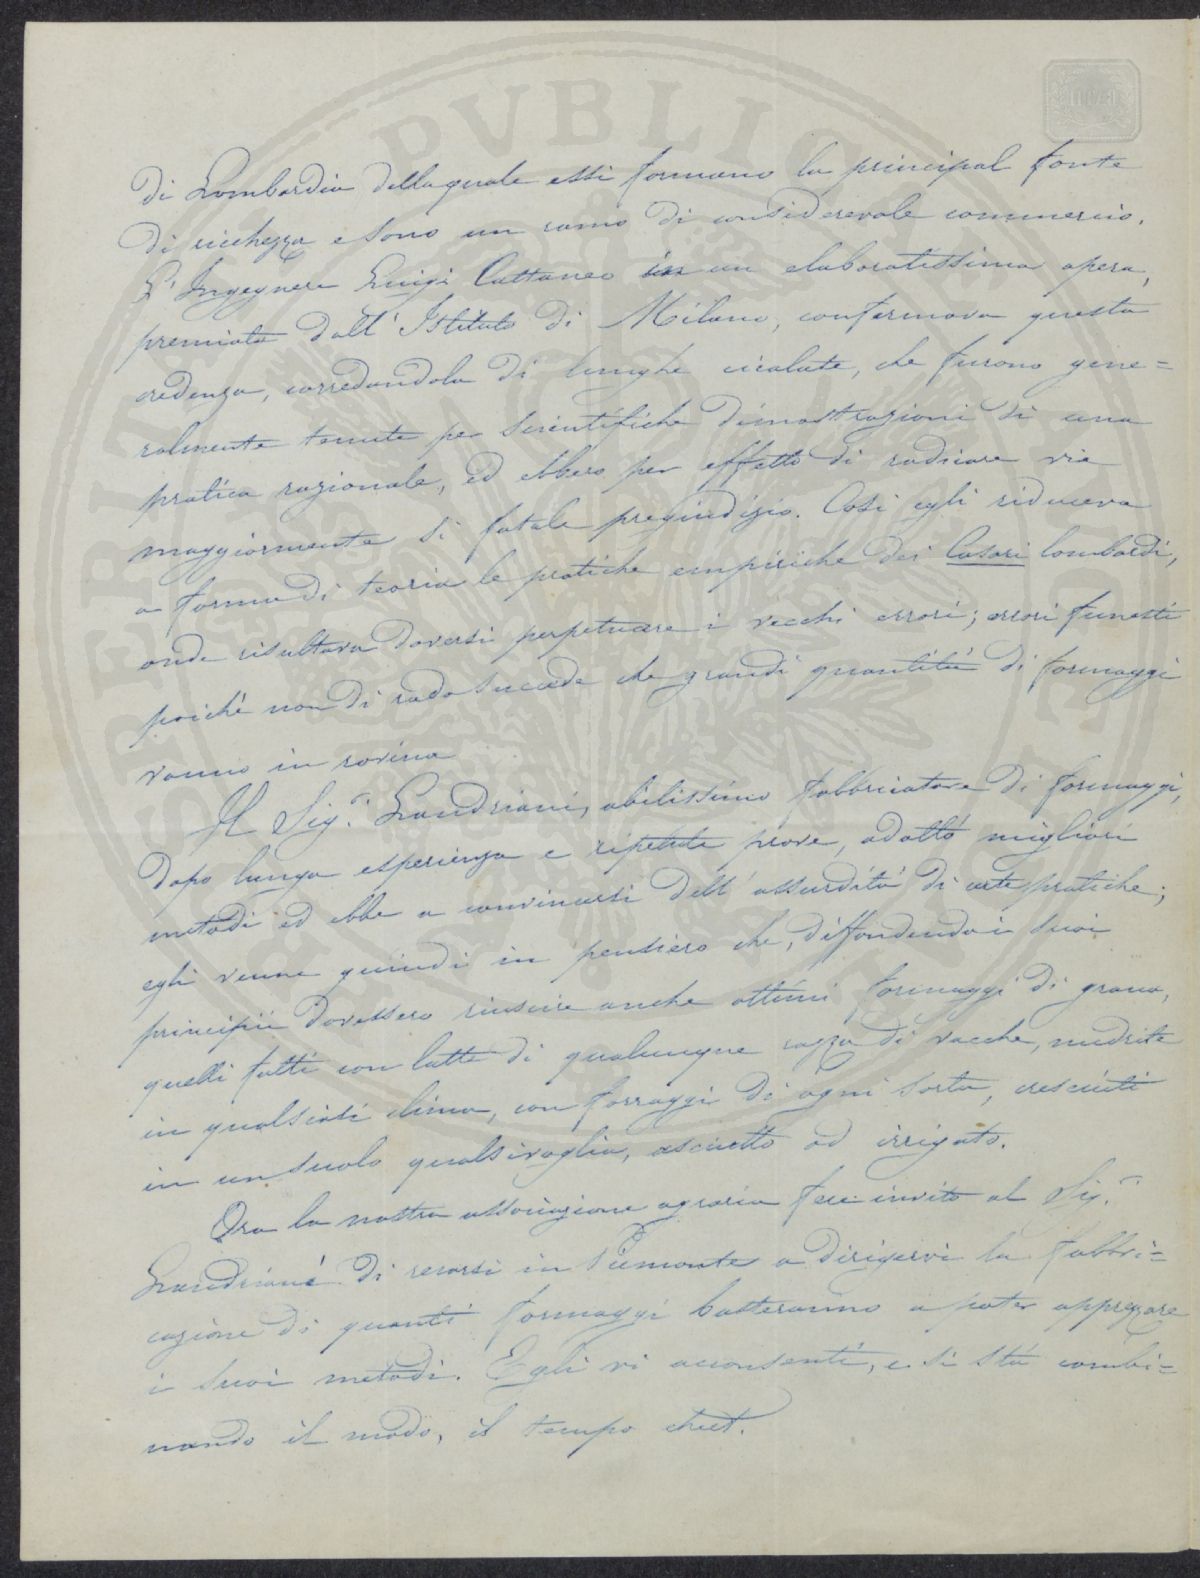 di Lombardia della quale essi formano la principal fonte
di ricchezza e sono un ramo di considerevole commercio.
L'Ingegnere Luigi Cattaneo in un elaboratissima opera,
premiata dall'Istituto di Milano, confermava questa
credenza, corredandola di lunghe cicalate, che furono gene=
ralmente tenute per scientifiche dimostrazioni di una
pratica razionale, ed ebbero per effetto di radicare vie
maggiormente sì fatale pregiudizio. Così egli riduceva
a forma di teoria le pratiche empiriche dei Casari lombardi,
onde risultava doversi perpetuare i vecchi errori; errori funesti
poiché non di rado succede che grandi quantità di formaggi
vanno in rovina
Il Sig.r Landriani, abilissimo fabbricatore di formaggi,
dopo lunga esperienza e ripetute prove, adottò migliori
metodi ed ebbe a convincersi dell'assurdità di certe pratiche;
egli venne quindi in pensiero che, diffondendo i suoi
principii dovessero riuscire anche ottimi formaggi di grana,
quelli fatti con latte di qualunque razza di vacche, nudrite
in qualsiasi clima, con forraggi di ogni sorta, cresciuti
in un suolo qualsivoglia, asciutto od irrigato.
Ora la nostra associazione agraria fece invito al Sig.r
Landriani di recarsi in Piemonte a dirigervi la fabbri=
cazione di quanti formaggi basteranno a poter apprezzare
i suoi metodi. Egli vi acconsentì, e si stà combi=
nando il modo, il tempo